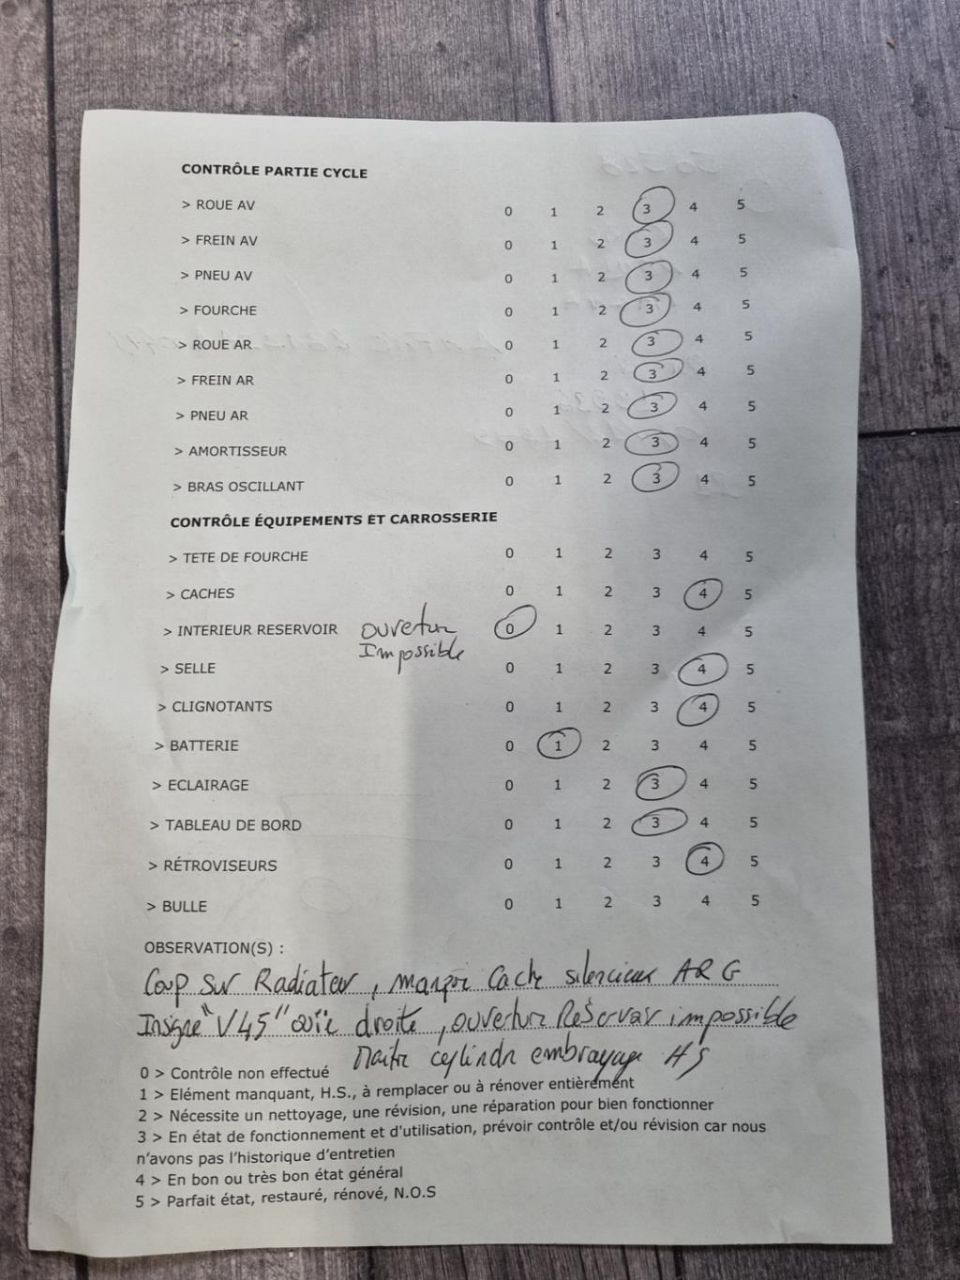 CONTRÔLE PARTIE CYCLE
> ROUE AV 0 1 2 3 4 5
> FREIN AV 0 1 2 3 4 5
> PNEU AV 0 1 2 3 4 5
> FOURCHE 0 1 2 3 4 5
> ROUE AR 0 1 2 3 4 5
> FREIN AR 0 1 2 3 4 5
> PNEU AR 0 1 2 3 4 5
> AMORTISSEUR 0 1 2 3 4 5
> BRAS OSCILLANT 0 1 2 3 4 5
CONTRÔLE ÉQUIPEMENTS ET CARROSSERIE
> TETE DE FOURCHE 0 1 2 3 4 5
> CACHES 0 1 2 3 4 5
> INTERIEUR RESERVOIR ouverture 0 1 2 3 4 5
Impossible
> SELLE 0 1 2 3 4 5
> CLIGNOTANTS 0 1 2 3 4 5
> BATTERIE 0 1 2 3 4 5
> ECLAIRAGE 0 1 2 3 4 5
> TABLEAU DE BORD 0 1 2 3 4 5
> RÉTROVISEURS 0 1 2 3 4 5
> BULLE 0 1 2 3 4 5
OBSERVATION(S) :
Coup sur Radiateur, manque Cache silencieux ARG
Insigne "V45" droite, ouverture Réservoir impossible
Maitre cylindre embrayage HS
0 > Contrôle non effectué
1 > Elément manquant, H.S., à remplacer ou à rénover entièrement
2 > Nécessite un nettoyage, une révision, une réparation pour bien fonctionner
3 > En état de fonctionnement et d'utilisation, prévoir contrôle et/ou révision car nous
n'avons pas l'historique d'entretien
4 > En bon ou très bon état général
5 > Parfait état, restauré, rénové, N.O.S